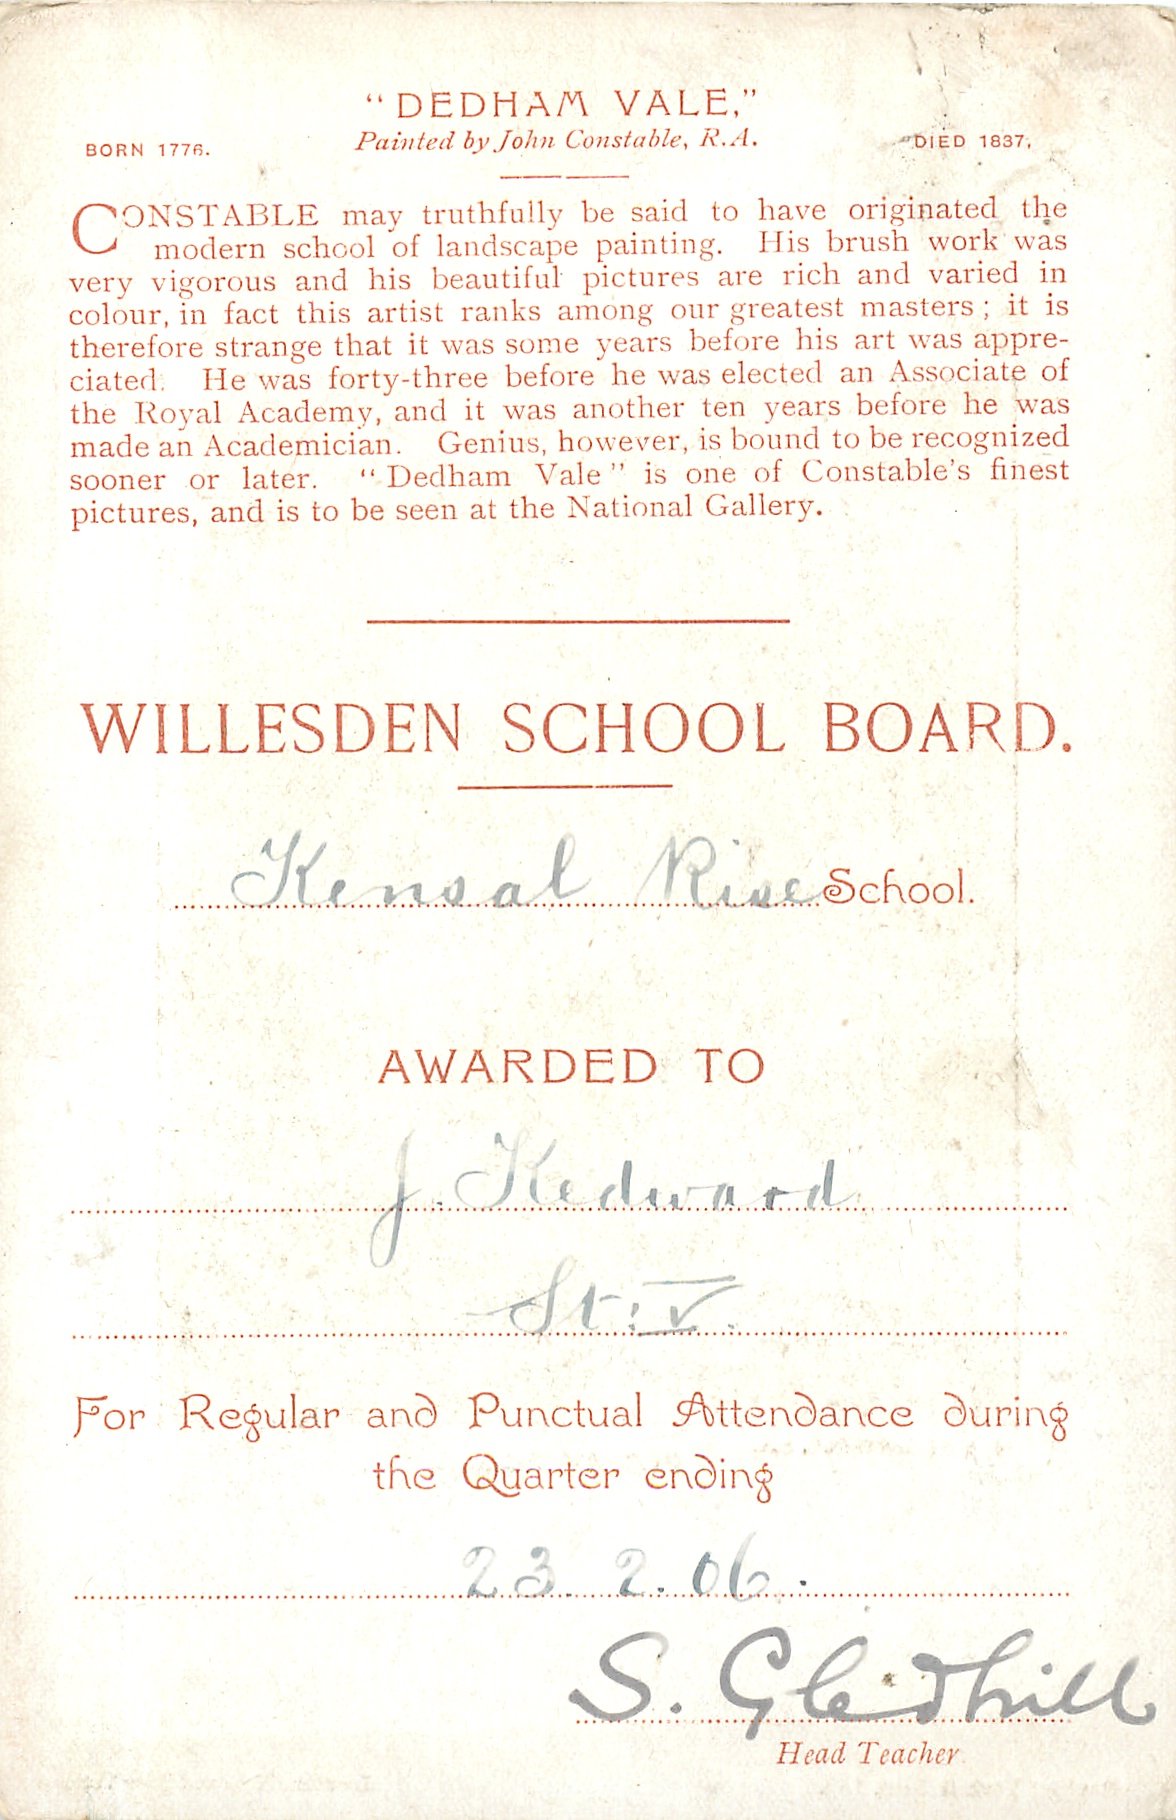 "DEDHAM VALE,"
Painted by John Constable, R.A.
BORN 1776.
DIED 1837.
CONSTABLE may truthfully be said to have originated the
modern school of landscape painting. His brush work was
very vigorous and his beautiful pictures are rich and varied in
colour, in fact this artist ranks among our greatest masters ; it is
therefore strange that it was some years before his art was appre-
ciated. He was forty-three before he was elected an Associate of
the Royal Academy, and it was another ten years before he was
made an Academician. Genius, however, is bound to be recognized
sooner or later. "Dedham Vale" is one of Constable's finest
pictures, and is to be seen at the National Gallery.
WILLESDEN SCHOOL BOARD.
Kensal Rise School.
AWARDED TO
J. Kedward
St: V.
For Regular and Punctual Attendance during
the Quarter ending
23. 2. 06.
S. Gledhill
Head Teacher